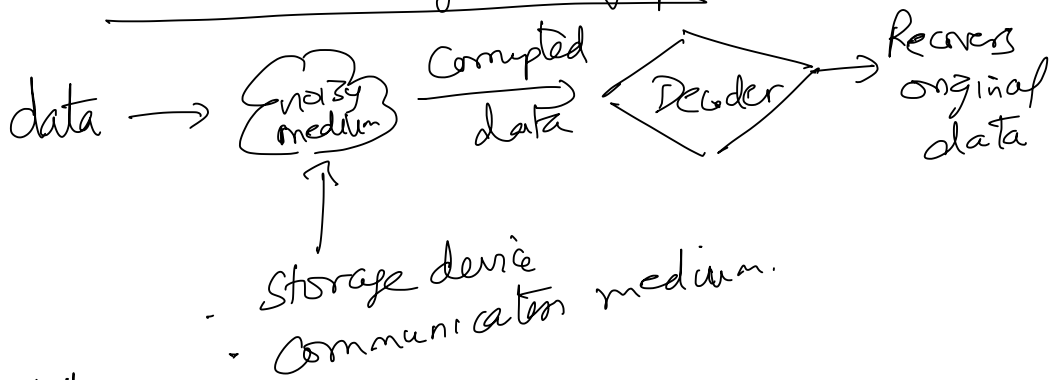 data
noisy
medium
Corrupted
data
Decoder
Recovers
original
data
storage device
communication medium.